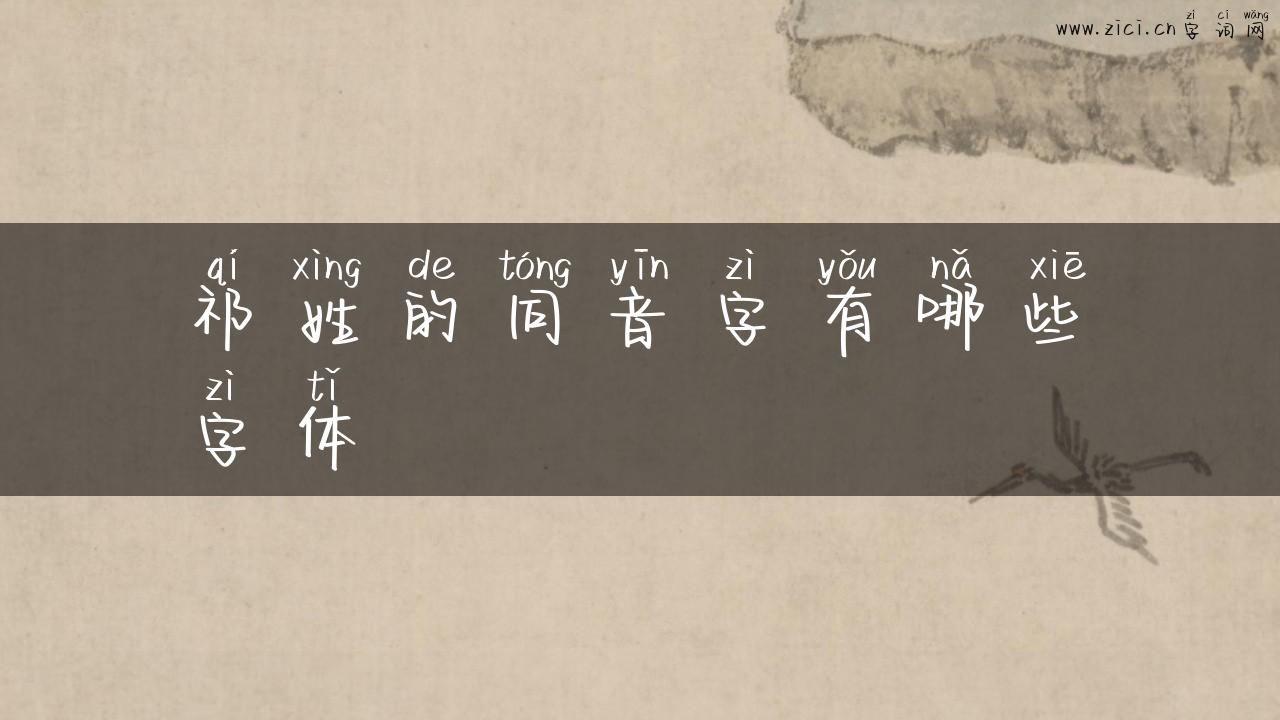 zì cí wǎng
www.zici.cn 字词网
qí xìng de tóng yīn zì yǒu nǎ xiē
祁姓的同音字有哪些
zì tǐ
字体